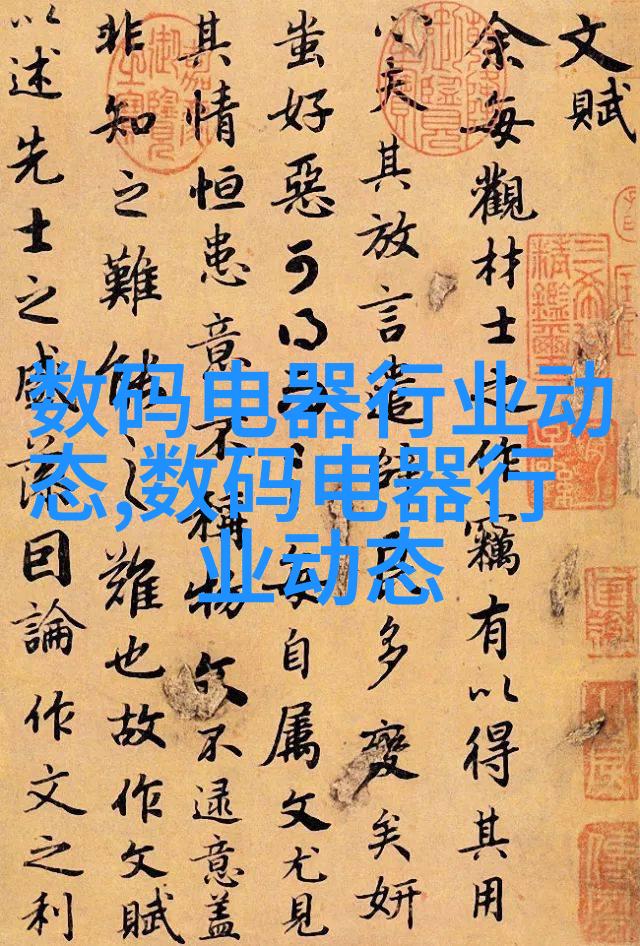 文賦
余每觀材士之作竊有以得其用
心夫其放言遣辭良多變矣妍
蚩好惡可得每自属文尤見
其情恒患意不稱物文不逮意盖
非知之難能之難也故作文賦
以述先士之盛藻因論作文之利
数码电器行业动
态,数码电器行
业动态